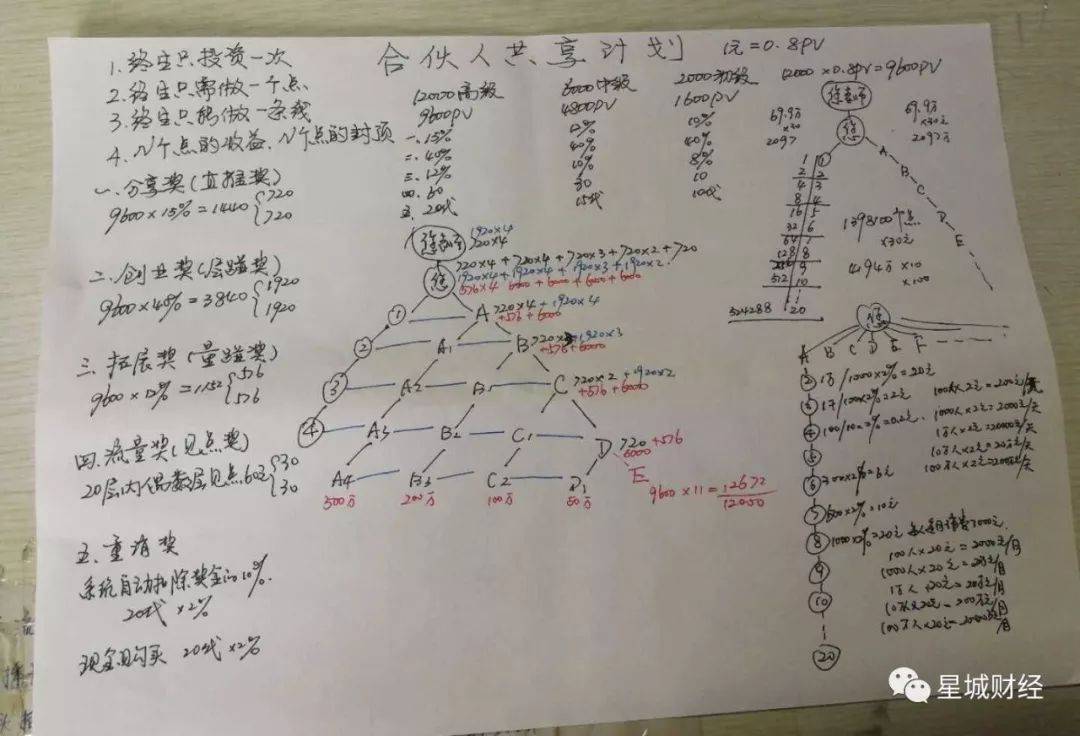 合伙人共享计划
1元=0.8PV
1. 终生只投资一次
2. 终生只需做一个点
3. 终生只能做一条线
4. N个点的收益、N个点的封顶
12000高级 6000中级 2000初级
9600PV 4800PV 1600PV
一. 15% 12% 10%
二. 40% 40% 40%
三. 12% 10% 8%
四. 60 30 10
五. 20代 15代 10代
一. 分享奖(直推奖)
9600×15%=1440 720
720
二. 创业奖(层碰奖)
9600×40%=3840 1920
1920
三. 拓展奖(量碰奖)
9600×12%=1152 576
576
四. 流量奖(见点奖)
20层内偶数层见点60元 30
30
五. 重消奖
系统自动扣除奖金的10%.
20代×2%
现金购买 20代×2%
1920×4
720×4
720×4+720×4+720×3+720×2+720
1920×4+1920×4+1920×3+1920×2
576×4 6000+6000+6000+6000
① A 720×4+1920×4
+576+6000
② A1 B 720×3+1920×3
+576+6000
③ A2 B1 C 720×2+1920×2
+576+6000
④ A3 B2 C1 D 720+576
6000
A4 B3 C2 D1 E
500万 200万 100万 50万
9600×11=12672
12000
12000×0.8PV=9600PV
69.9万
×30
2097
69.9万
×30元
2097万
A
B
C
D
E
1 ①
2 2
4 3
8 4
16 5
32 6
64 7
128 8
256 9
512 10
524288 20
1398100个点
×30元
4194万×10
×100
A B C D E F
② 1万/1000×2%=20元
③
④
⑤
⑥ 300×2%=6元
⑦ 500×2%=10元
⑧ 1000×2%=20元
⑨
⑩
⑳
1000人×2元=2000元/天
1万人×2元=20000元/天
10万人×2元=20万元/天
100万人×2元=200万元/天
100人×20元=2000元/月
1000人×20元=2万元/月
1万人×20元=20万元/月
10万×20元=200万元/月
星城财经